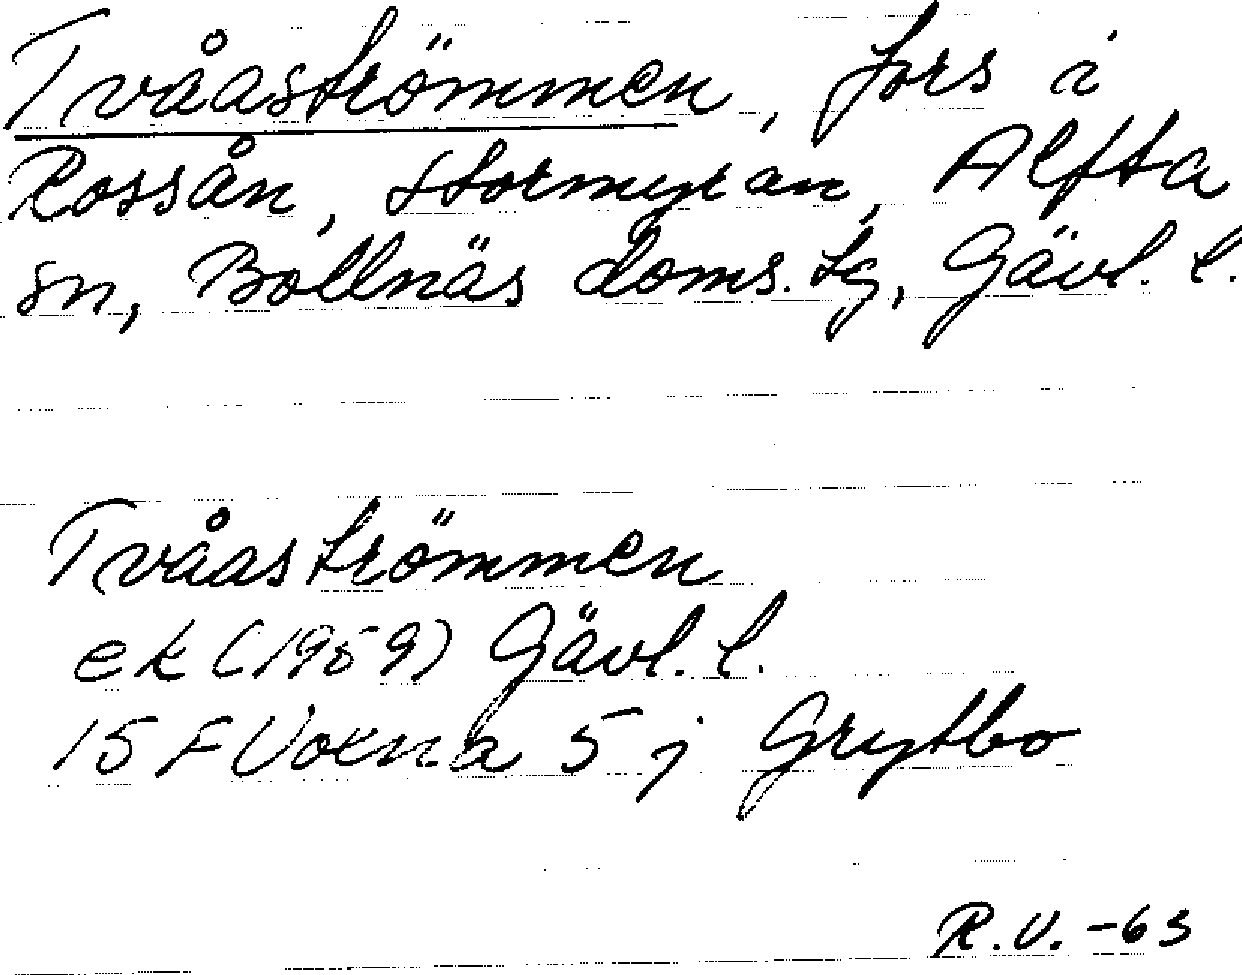 Tvåaströmmen, fors i
Rossån, Stormyran, Alfta
sn, Bollnäs doms. tg, Gävl. l.
Tvåaströmmen
ek (1959) Gävl. l.
15 F Voxna 5 j Grytbo
R.V. -63